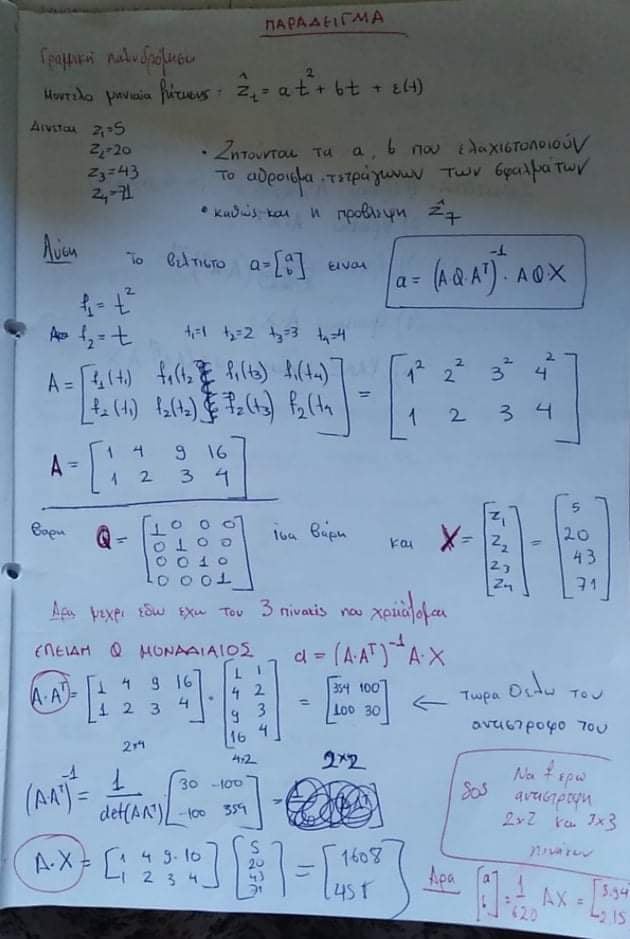 ΠΑΡΑΔΕΙΓΜΑ
Γραμμική παλινδρόμηση
Μοντέλο μηνιαία : ẑ_t = at² + bt + ε(t)
Δίνεται z₁=5
z₂=20
z₃=43
z₄=71
• Ζητούνται τα a, b που ελαχιστοποιούν
το άθροισμα τετράγωνων των σφαλμάτων
• καθώς και η πρόβλεψη ẑ₇
Λύση
Το βέλτιστο a = [a b] είναι
a = (A·Q·Aᵀ)⁻¹ · AQ·X
f₁ = t²
f₂ = t t₁=1 t₂=2 t₃=3 t₄=4
A = [f₁(t₁) f₁(t₂) f₁(t₃) f₁(t₄) = [1² 2² 3² 4²
f₂(t₁) f₂(t₂) f₂(t₃) f₂(t₄] 1 2 3 4]
A = [1 4 9 16
1 2 3 4]
βάρη Q = [1 0 0 0
0 1 0 0
0 0 1 0
0 0 0 1] ίσα βάρη
και X = [z₁ z₂ z₃ z₄] = [5 20 43 71]
Άρα μέχρι εδώ έχω του 3 πίνακες που χρειάζομαι
ΕΠΕΙΔΗ Q ΜΟΝΑΔΙΑΙΟΣ a = (A·Aᵀ)⁻¹ A·X
A·Aᵀ = [1 4 9 16
1 2 3 4] · [1 1
4 2
9 3
16 4] = [354 100
100 30] ← τώρα θέλω τον
αντίστροφο του
2x4 4x2 2x2
(AAᵀ)⁻¹ = 1/det(AAᵀ) · [30 -100
-100 354] =
SOS
Να ξέρω
αντιστροφή
2x2 και 3x3
πινάκων
A·X = [1 4 9 16
1 2 3 4] [5
20
43
71] = [1608
458]
Άρα [a b] = 1/620 AX = [3.94
2.15